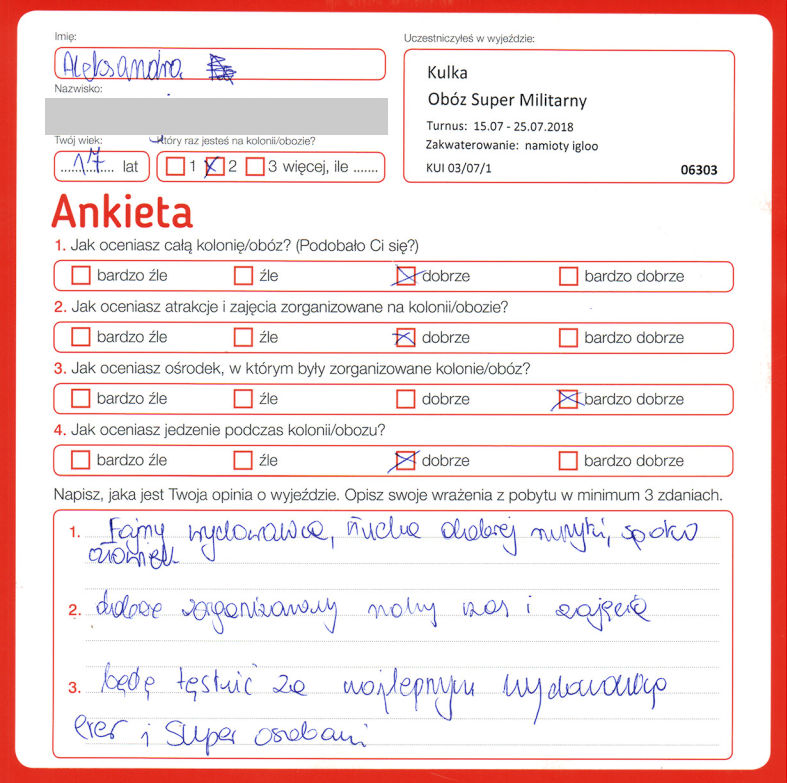 Imię:
Uczestniczyłeś w wyjeździe:
Aleksandra
Kulka
Obóz Super Militarny
Turnus: 15.07 - 25.07.2018
Zakwaterowanie: namioty igloo
KUI 03/07/1 06303
Nazwisko:
Twój wiek: który raz jesteś na kolonii/obozie?
17 lat 1 2 3 więcej, ile .......
Ankieta
1. Jak oceniasz całą kolonię/obóz? (Podobało Ci się?)
bardzo źle źle dobrze bardzo dobrze
2. Jak oceniasz atrakcje i zajęcia zorganizowane na kolonii/obozie?
bardzo źle źle dobrze bardzo dobrze
3. Jak oceniasz ośrodek, w którym były zorganizowane kolonie/obóz?
bardzo źle źle dobrze bardzo dobrze
4. Jak oceniasz jedzenie podczas kolonii/obozu?
bardzo źle źle dobrze bardzo dobrze
Napisz, jaka jest Twoja opinia o wyjeździe. Opisz swoje wrażenia z pobytu w minimum 3 zdaniach.
1. Fajny wychowawca, słucha dobrej muzyki, spoko
człowiek
2. dobrze zorganizowany wolny czas i zajęcia
3. będę tęsknić za najlepszym wychowawcą
ever i super osobami